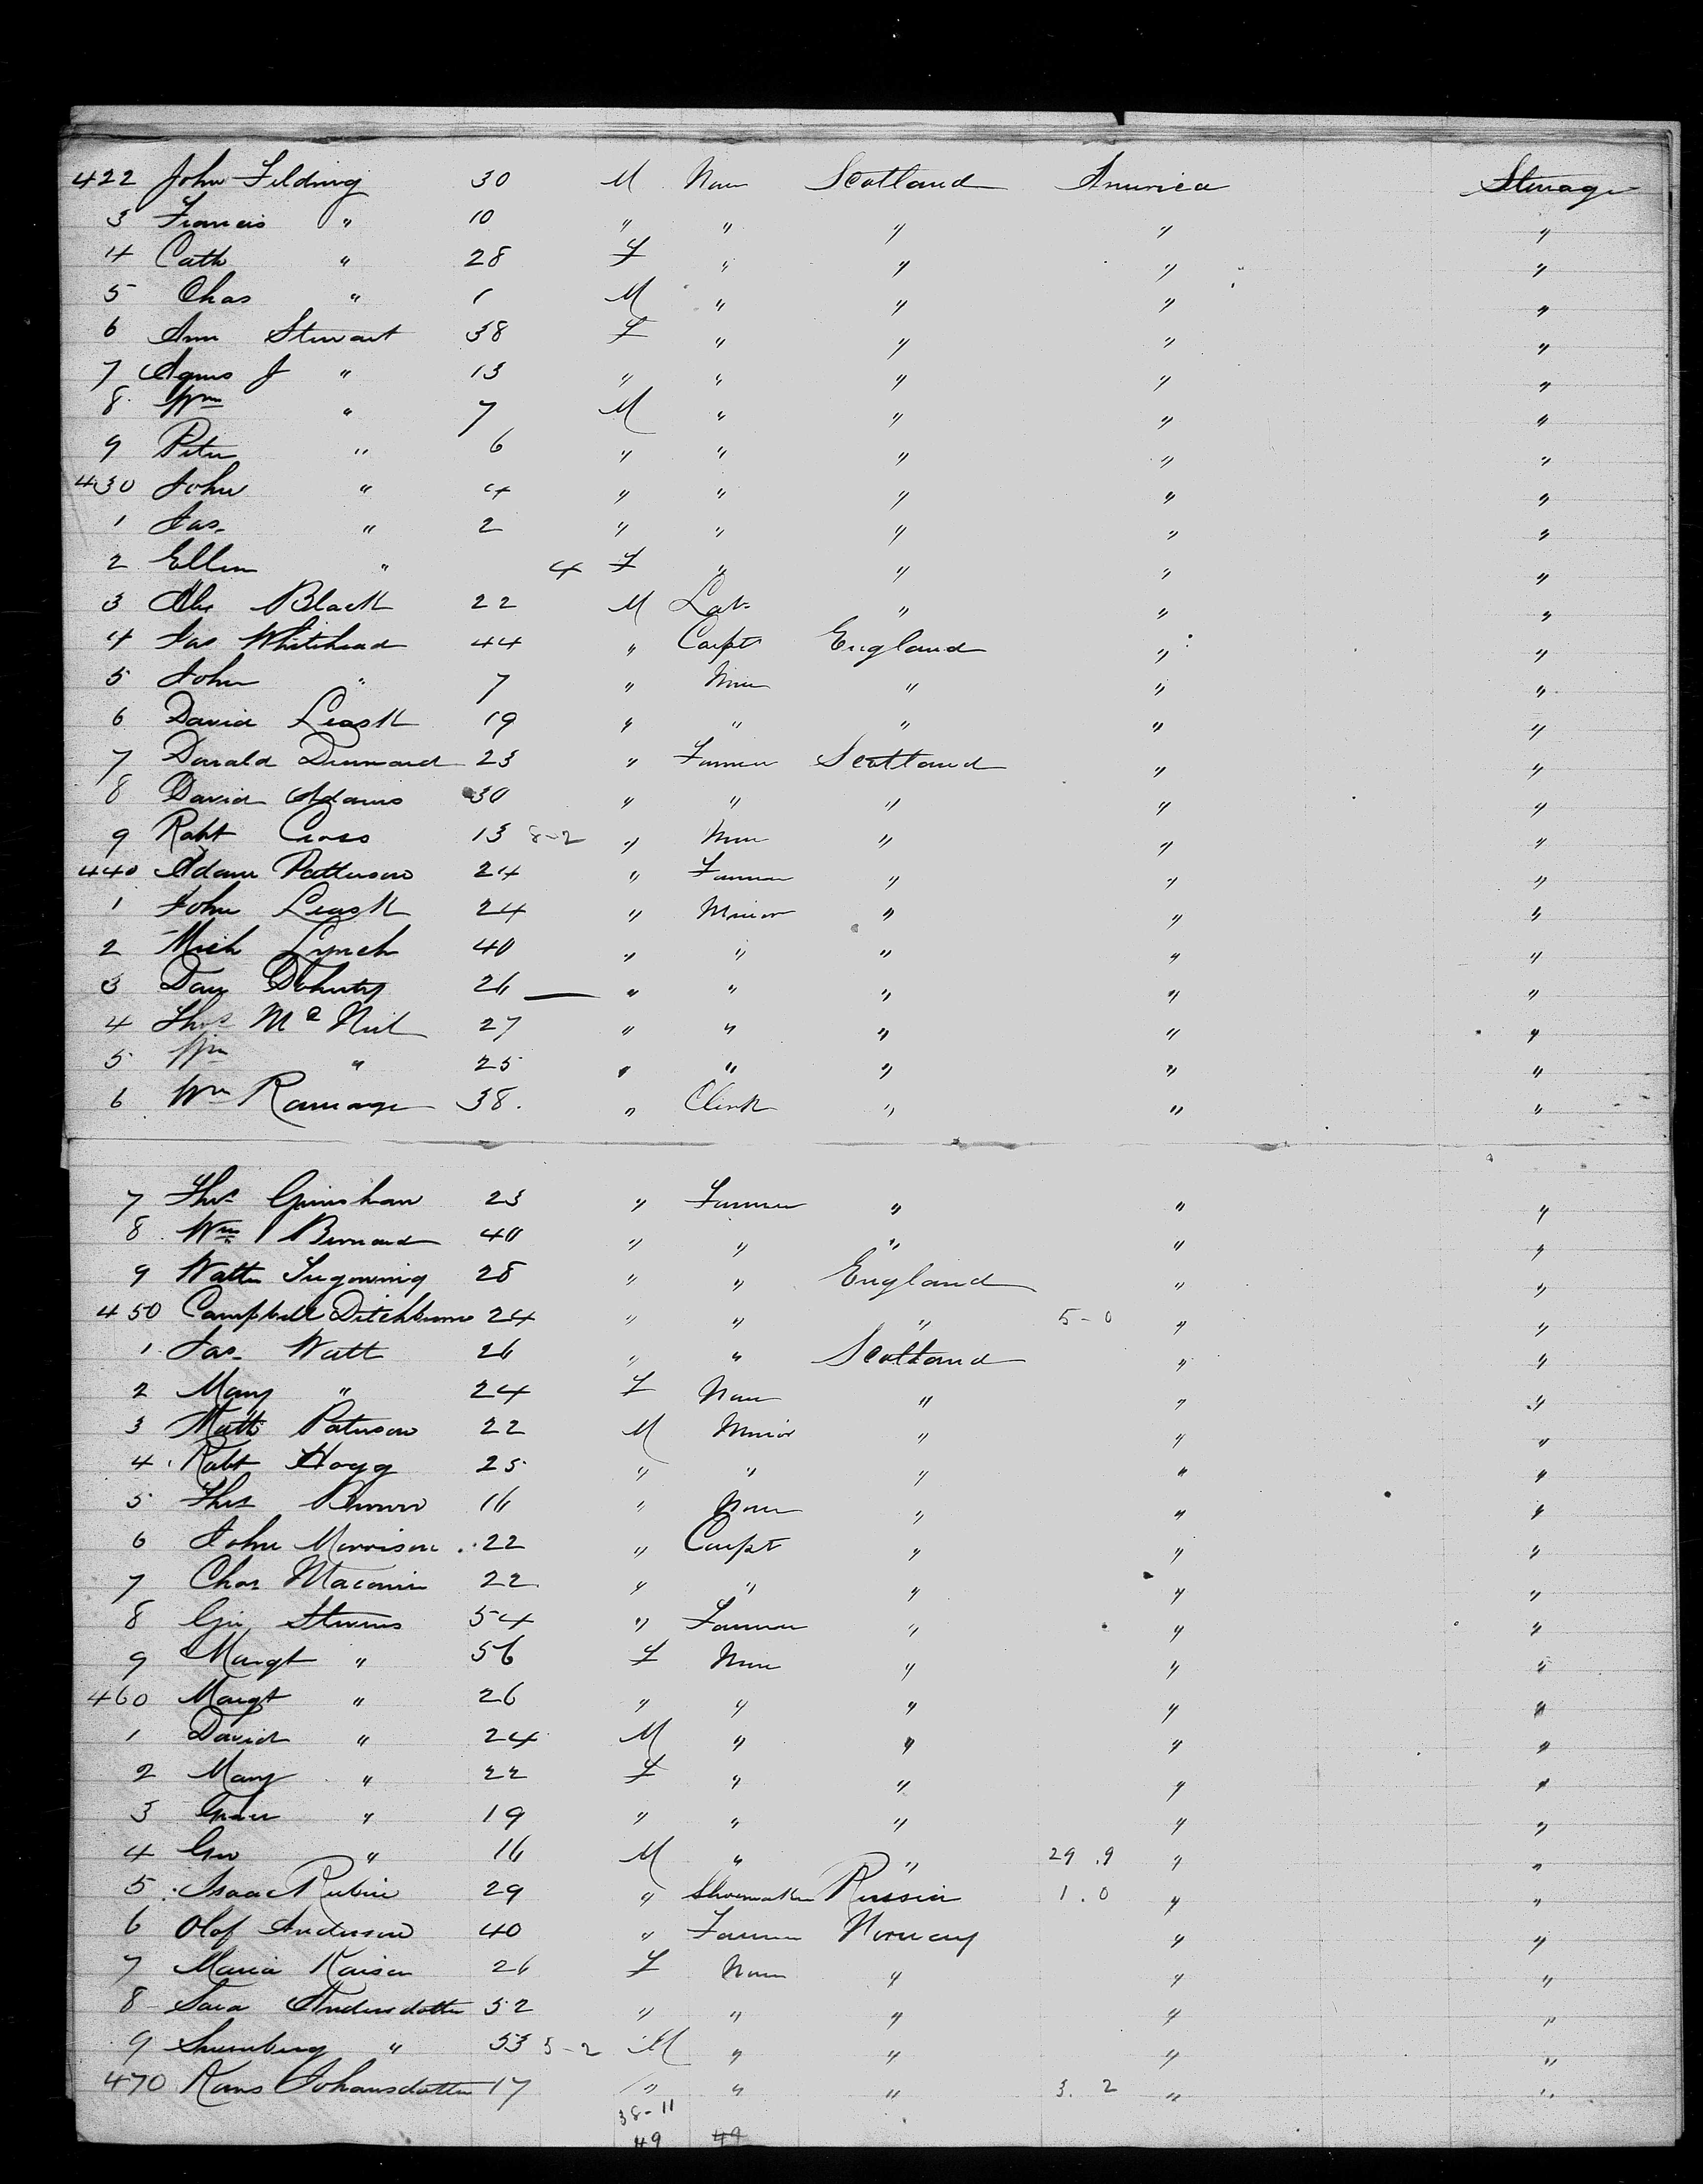 422 John Feldring 30 M None Scotland America Steerage
3 Francis " 10 " " " " "
4 Cath " 28 F " " " "
5 Chas " 1 M " " " "
6 Ann Stewart 38 F " " " "
7 Agnes J " 13 " " " " "
8 Wm " 7 M " " " "
9 Peter " 6 " " " " "
430 John " 4 " " " " "
1 Jas " 2 " " " " "
2 Ellen " 4 F " " " "
3 Alex Black 22 M Lab " " "
4 Jas Whitehead 44 " Carpt England " "
5 John " 7 " None " " "
6 David Leask 19 " " " " "
7 Donald 23 " Farmer Scotland " "
8 David Adams 30 " " " " "
9 Robt Cross 13 8-2 " None " " "
440 Adam Patterson 24 " Farmer " " "
1 John Leask 24 " Minor " " "
2 Mich Lynch 40 " " " " "
3 Dan Doherty 26 " " " " "
4 Thos Mc Neil 27 " " " " "
5 Wm " 25 " " " " "
6 Wm Ramage 38. " Clerk " " "
7 Thos Grimshaw 23 " Farmer " " "
8 Wm Bernard 40 " " " " "
9 Walter 28 " " England " "
450 Campbell Ditchburne 24 " " " 5-0 " "
1 Jas Watt 26 " " Scotland " "
2 Mary " 24 F None " " "
3 Matt Paterson 22 M Minor " " "
4 Robt Hogg 25 " " " " "
5 Thos Brown 16 " None " " "
6 John Morrison 22 " Carpt " " "
7 Chas 22 " " " " "
8 Geo Stevens 54 " Farmer " " "
9 Margt " 56 F None " " "
460 Margt " 26 " " " " "
1 David " 24 M " " " "
2 Mary " 22 F " " " "
3 " 19 " " " " "
4 Geo " 16 M " " 29.9 " "
5 Isaac Rubin 29 " Shoemaker Russia 1.0 " "
6 Olof Anderson 40 " Farmer Norway " "
7 Maria Kaisa 26 F None " " "
8 Sara Andersdotter 52 " " " " "
9 " 53 3-2 M " " " "
470 Hans Johansdotter 17 " " " 3.2 " "
38-11
49 49